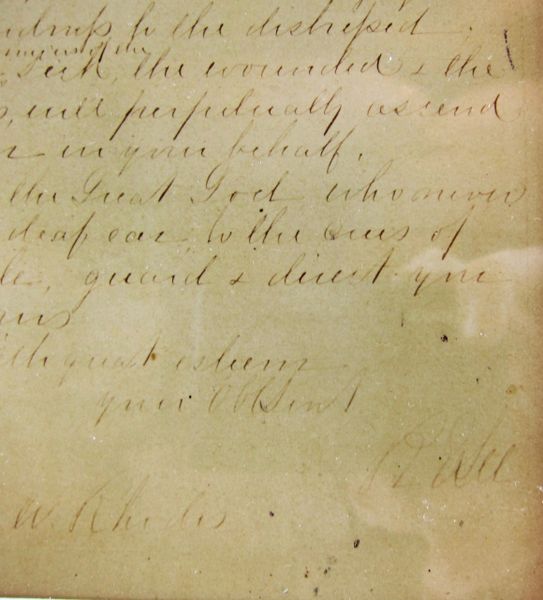 to the distressed
of the
sick, the wounded & the
will perpetually ascend
in your behalf.
the Great God who never
deaf ear to the cries of
guard & direct you
great esteem
your Obt Servt
R E Lee
W. Rhodes